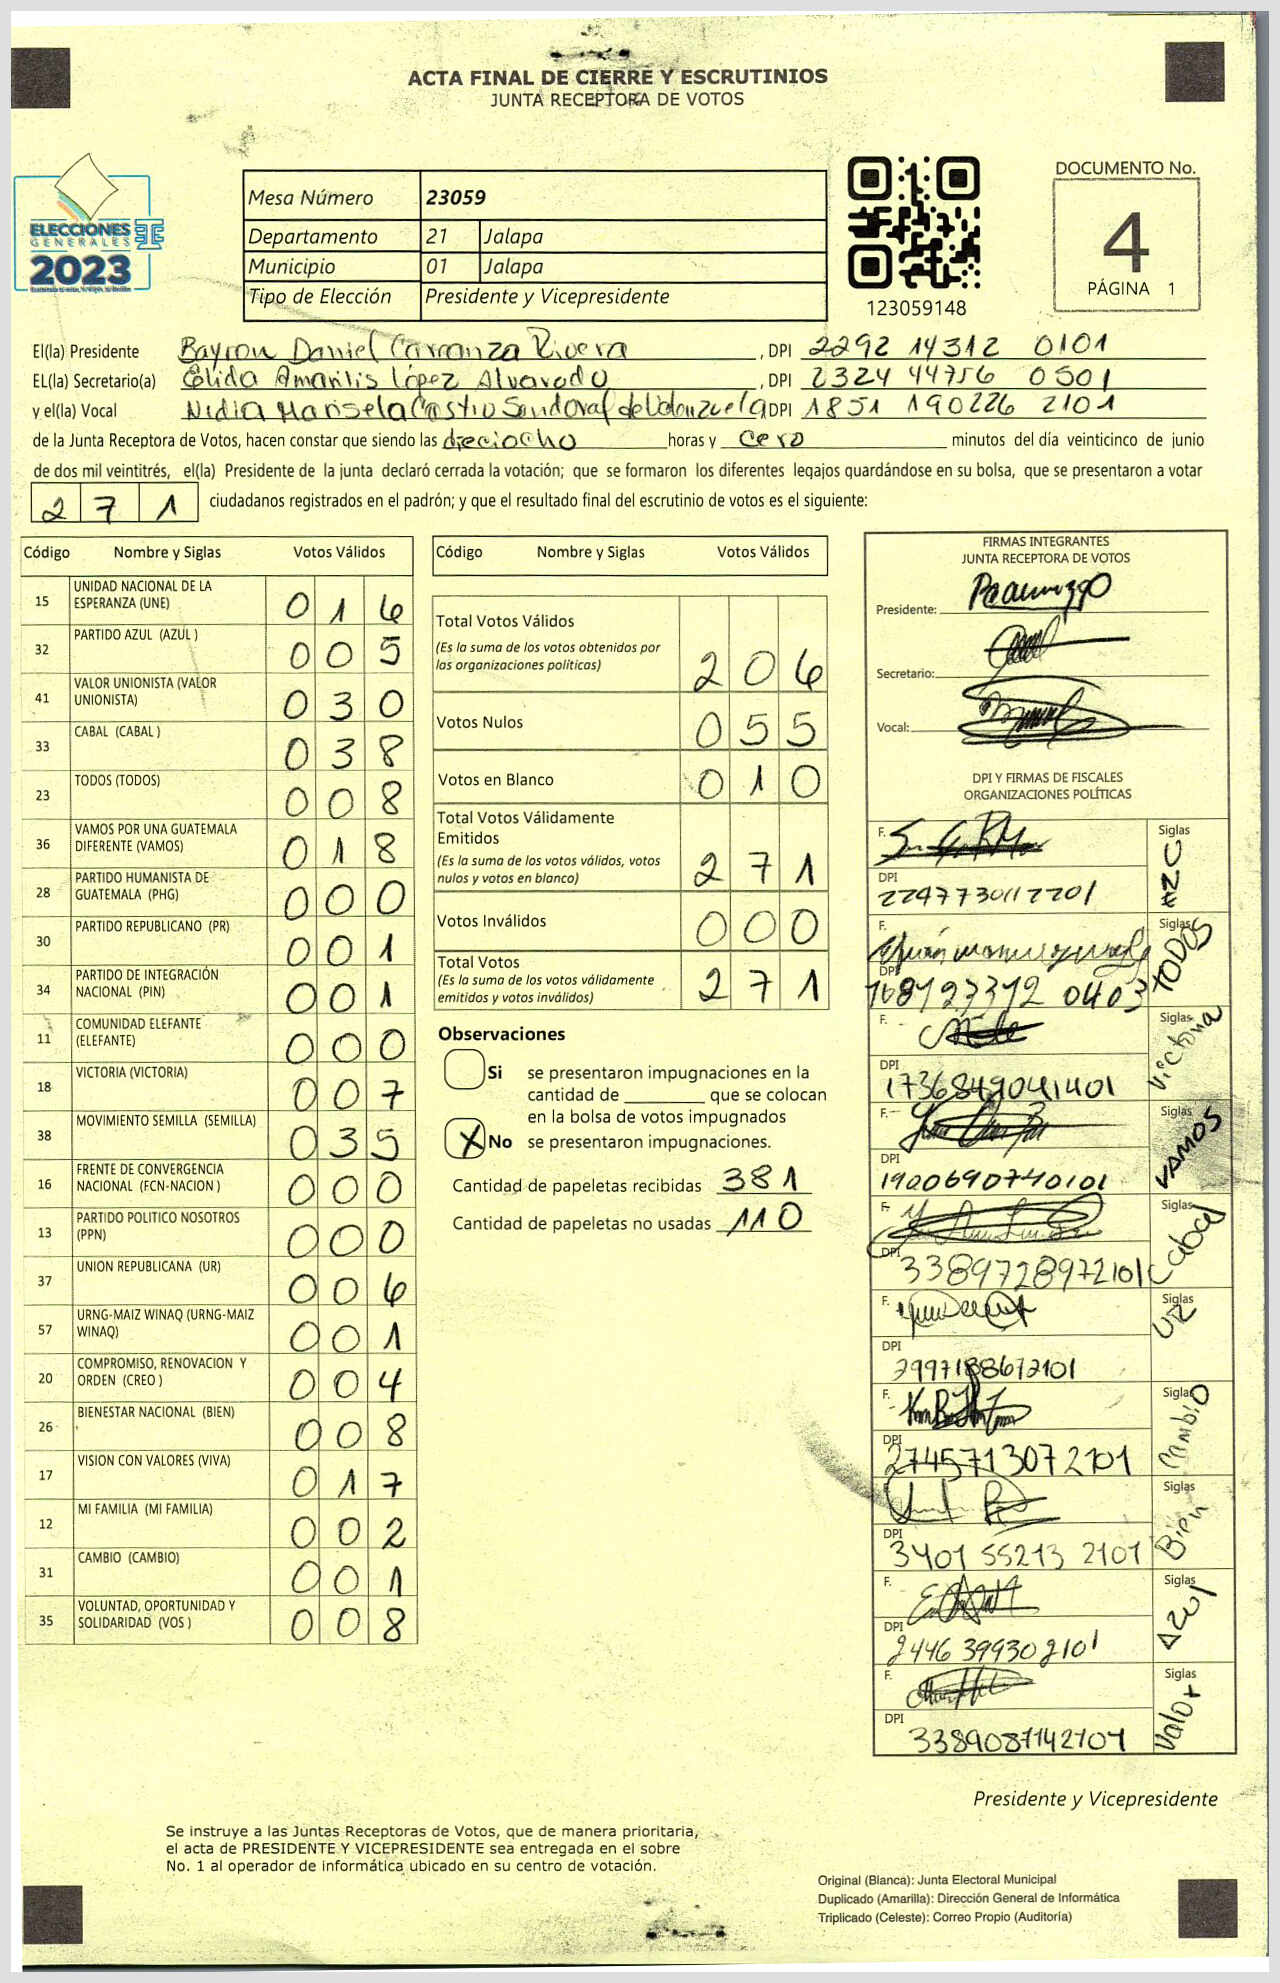 ACTA FINAL DE CIERRE Y ESCRUTINIOS
JUNTA RECEPTORA DE VOTOS
ELECCIONES
GENERALES
2023
Mesa Número 23059
Departamento 21 Jalapa
Municipio 01 Jalapa
Tipo de Elección Presidente y Vicepresidente
123059148
DOCUMENTO No.
4
PÁGINA 1
El(la) Presidente Bayron Daniel Carranza Rivera, DPI 2292 14312 0101
EL(la) Secretario(a) Elida Amarilis López Alvarado, DPI 2324 44756 0501
y el(la) Vocal Nidia Marisela Castro Sandoval de Valenzuela, DPI 1851 190226 2101
de la Junta Receptora de Votos, hacen constar que siendo las dieciocho horas y cero minutos del día veinticinco de junio
de dos mil veintitrés, el(la) Presidente de la junta declaró cerrada la votación; que se formaron los diferentes legajos guardándose en su bolsa, que se presentaron a votar
271 ciudadanos registrados en el padrón; y que el resultado final del escrutinio de votos es el siguiente:
Código Nombre y Siglas Votos Válidos
15 UNIDAD NACIONAL DE LA ESPERANZA (UNE) 016
32 PARTIDO AZUL (AZUL ) 005
41 VALOR UNIONISTA (VALOR UNIONISTA) 030
33 CABAL (CABAL ) 038
23 TODOS (TODOS) 008
36 VAMOS POR UNA GUATEMALA DIFERENTE (VAMOS) 018
28 PARTIDO HUMANISTA DE GUATEMALA (PHG) 000
30 PARTIDO REPUBLICANO (PR) 001
34 PARTIDO DE INTEGRACIÓN NACIONAL (PIN) 001
11 COMUNIDAD ELEFANTE (ELEFANTE) 000
18 VICTORIA (VICTORIA) 007
38 MOVIMIENTO SEMILLA (SEMILLA) 035
16 FRENTE DE CONVERGENCIA NACIONAL (FCN-NACION ) 000
13 PARTIDO POLITICO NOSOTROS (PPN) 000
37 UNION REPUBLICANA (UR) 006
57 URNG-MAIZ WINAQ (URNG-MAIZ WINAQ) 001
20 COMPROMISO, RENOVACION Y ORDEN (CREO ) 004
26 BIENESTAR NACIONAL (BIEN) 008
17 VISION CON VALORES (VIVA) 017
12 MI FAMILIA (MI FAMILIA) 002
31 CAMBIO (CAMBIO) 001
35 VOLUNTAD, OPORTUNIDAD Y SOLIDARIDAD (VOS ) 008
Código Nombre y Siglas Votos Válidos
Total Votos Válidos 206
(Es la suma de los votos obtenidos por
las organizaciones políticas)
Votos Nulos 055
Votos en Blanco 010
Total Votos Válidamente
Emitidos 271
(Es la suma de los votos válidos, votos
nulos y votos en blanco)
Votos Inválidos 000
Total Votos 271
(Es la suma de los votos válidamente
emitidos y votos inválidos)
Observaciones
Si se presentaron impugnaciones en la
cantidad de ________ que se colocan
en la bolsa de votos impugnados
X No se presentaron impugnaciones.
Cantidad de papeletas recibidas 381
Cantidad de papeletas no usadas 110
FIRMAS INTEGRANTES
JUNTA RECEPTORA DE VOTOS
Presidente:
Secretario:
Vocal:
DPI Y FIRMAS DE FISCALES
ORGANIZACIONES POLÍTICAS
F. Siglas
DPI
2247730112201
F. Siglas TODOS
DPI
F. Siglas Victoria
DPI
1736849041401
F. Siglas VAMOS
DPI
1900690740101
F. Siglas Cabal
DPI
3389728972101
F. Siglas
DPI
2997188672101
F. Siglas Cambio
DPI
2745713072101
F. Siglas Bien
DPI
3401 55213 2101
F. Siglas Azul
DPI
2446 39930 2101
F. Siglas Valor
DPI
3389087142101
Presidente y Vicepresidente
Se instruye a las Juntas Receptoras de Votos, que de manera prioritaria,
el acta de PRESIDENTE Y VICEPRESIDENTE sea entregada en el sobre
No. 1 al operador de informática ubicado en su centro de votación.
Original (Blanca): Junta Electoral Municipal
Duplicado (Amarilla): Dirección General de Informática
Triplicado (Celeste): Correo Propio (Auditoría)